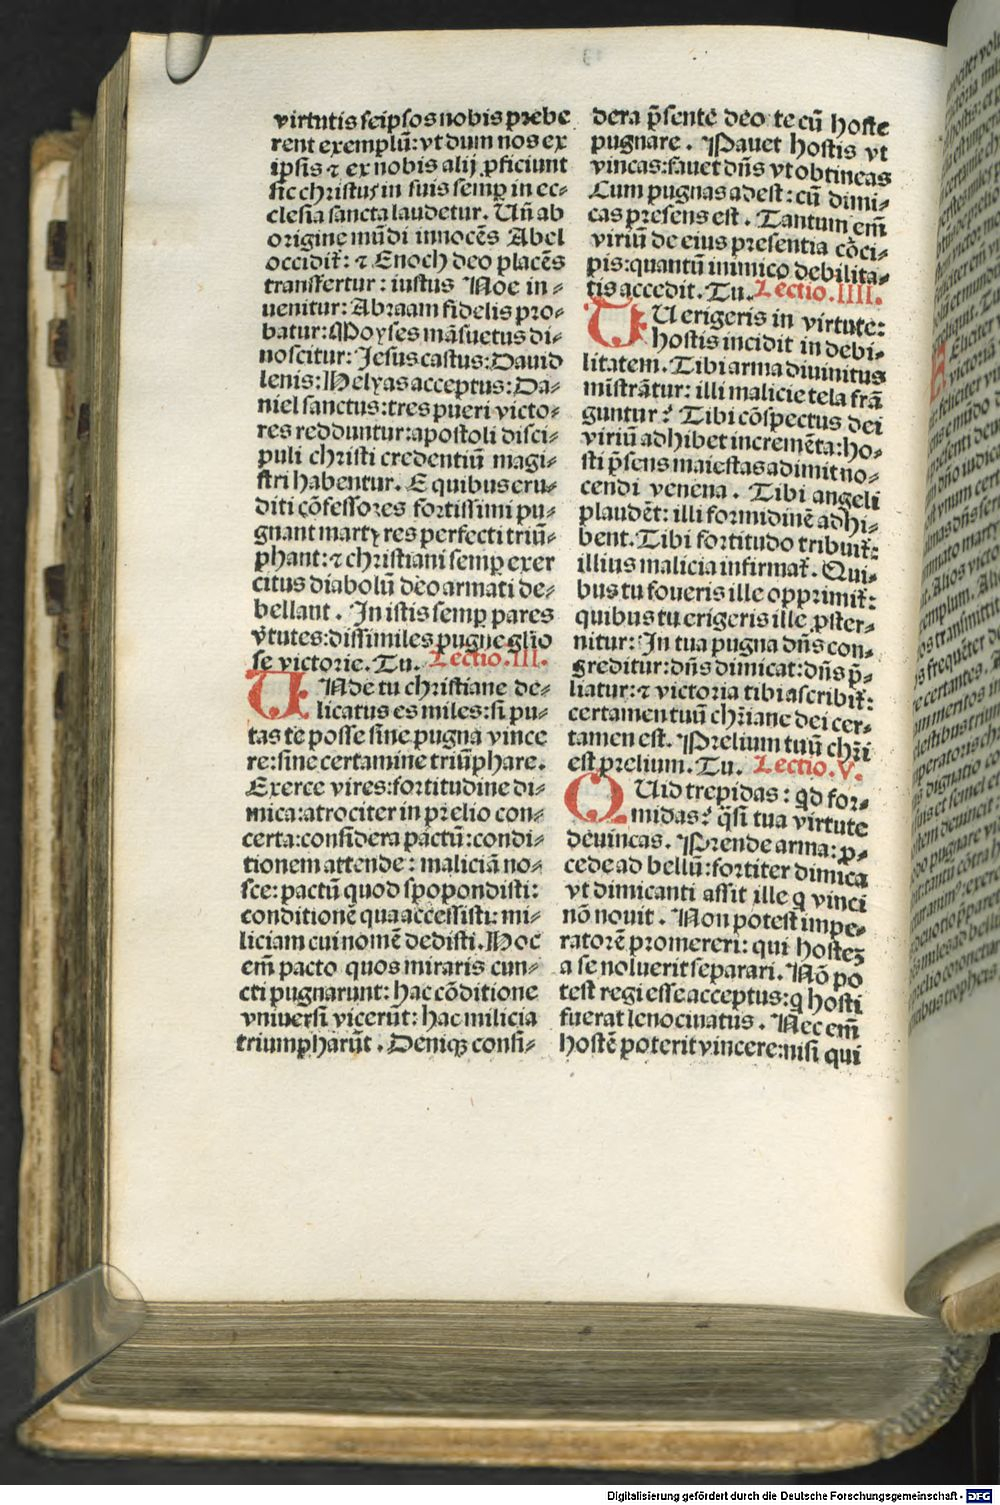 virtutis seipsos nobis prebe
rent exemplū: vt dum nos ex
ipsis ⁊ ex nobis alij ꝓficiunt
sic christus in suis semꝑ in ec⸗
clesia sancta laudetur. Uñ ab
origine mūdi innocēs Abel
occidit᷑: ⁊ Enoch deo placēs
transfertur: iustus Noe in⸗
uenitur: Abraam fidelis pro⸗
batur: Moyses māsuetus di⸗
noscitur: Jesus castus: Dauid
lenis: Helyas acceptus: Da⸗
niel sanctus: tres pueri victo⸗
res redduntur: apostoli disci⸗
puli christi credentiū magi⸗
stri habentur. E quibus eru⸗
diti cōfessores fortissimi pu⸗
gnant martyres perfecti triū⸗
phant: ⁊ christiani semꝑ exer
citus diabolū deo armati de⸗
bellant. In istis semꝑ pares
v̓tutes: dissimiles pugne gl̄io
se victorie. Tu. Lectio. III.
UNde tu christiane de⸗
licatus es miles: si pu⸗
tas te posse sine pugna vince
re: sine certamine triūphare.
Exerce vires: fortitudine di⸗
mica: atrociter in prelio con⸗
certa: considera pactū: condi⸗
tionem attende: maliciā no⸗
sce: pactū quod spopondisti:
conditionē qua accessisti: mi⸗
liciam cui nomē dedisti. Hoc
em̄ pacto quos miraris cun⸗
cti pugnarunt: hac cōditione
vniuersi vicerūt: hac milicia
triumpharūt. Deniqꝫ consi⸗
dera p̄sentē deo te cū hoste
pugnare. Pauet hostis vt
vincas: fauet dn̄s vt obtineas
Cum pugnas adest: cū dimi⸗
cas presens est. Tantum em̄
viriū de eius presentia cōci⸗
pis: quantū inimico debilita⸗
tis accedit. Tu. Lectio. IIII.
TU erigeris in virtute:
hostis incidit in debi⸗
litatem. Tibi arma diuinitus
mīstrātur: illi malicie tela frā
guntur: Tibi cōspectus dei
viriū adhibet incremēta: ho⸗
sti p̄sens maiestas adimit no⸗
cendi venena. Tibi angeli
plaudēt: illi formidinē adhi⸗
bent. Tibi fortitudo tribuit᷑:
illius malicia infirmat᷑. Qui⸗
bus tu foueris ille opprimit᷑:
quibus tu erigeris ille ꝓster⸗
nitur: In tua pugna dn̄s con⸗
greditur: dn̄s dimicat: dn̄s p̄⸗
liatur: ⁊ victoria tibi ascribit᷑:
certamen tuū chr̄iane dei cer⸗
tamen est. Prelium tuū chr̄i
est prelium. Tu. Lectio. V.
QUid trepidas: qd for⸗
midas: q̄si tua virtute
deuincas. Prende arma: ꝓ⸗
cede ad bellū: fortiter dimica
vt dimicanti assit ille q vinci
nō nouit. Non potest impe⸗
ratorē promereri: qui hosteꝫ
a se noluerit separari. Nō po
test regi esse acceptus: q hosti
fuerat lenocinatus. Nec em̄
hostē poterit vincere: nisi qui
Digitalisierung gefördert durch die Deutsche Forschungsgemeinschaft - DFG